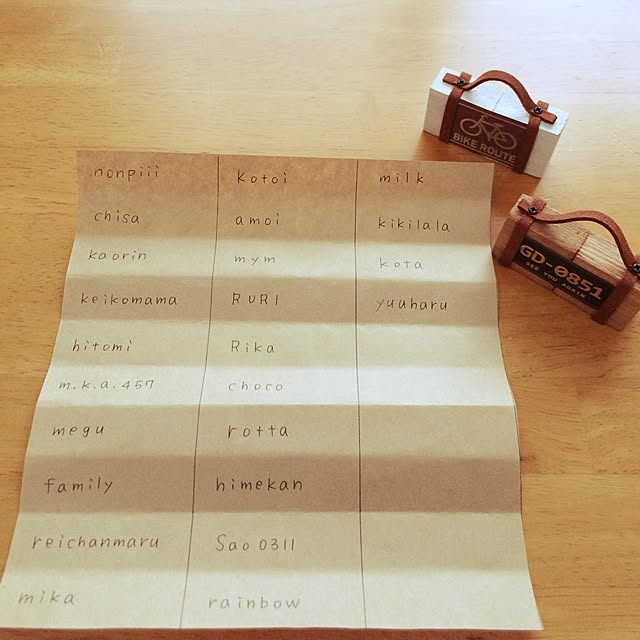 nonpiii
chisa
kaorin
keikomama
hitomi
m.k.a.457
megu
family
reichanmaru
mika
Kotoi
amoi
mym
RURI
Rika
choco
rotta
himekan
Sao0311
rainbow
milk
kikilala
kota
yuuharu
BIKE ROUTE
GD-0851
SEE YOU AGAIN